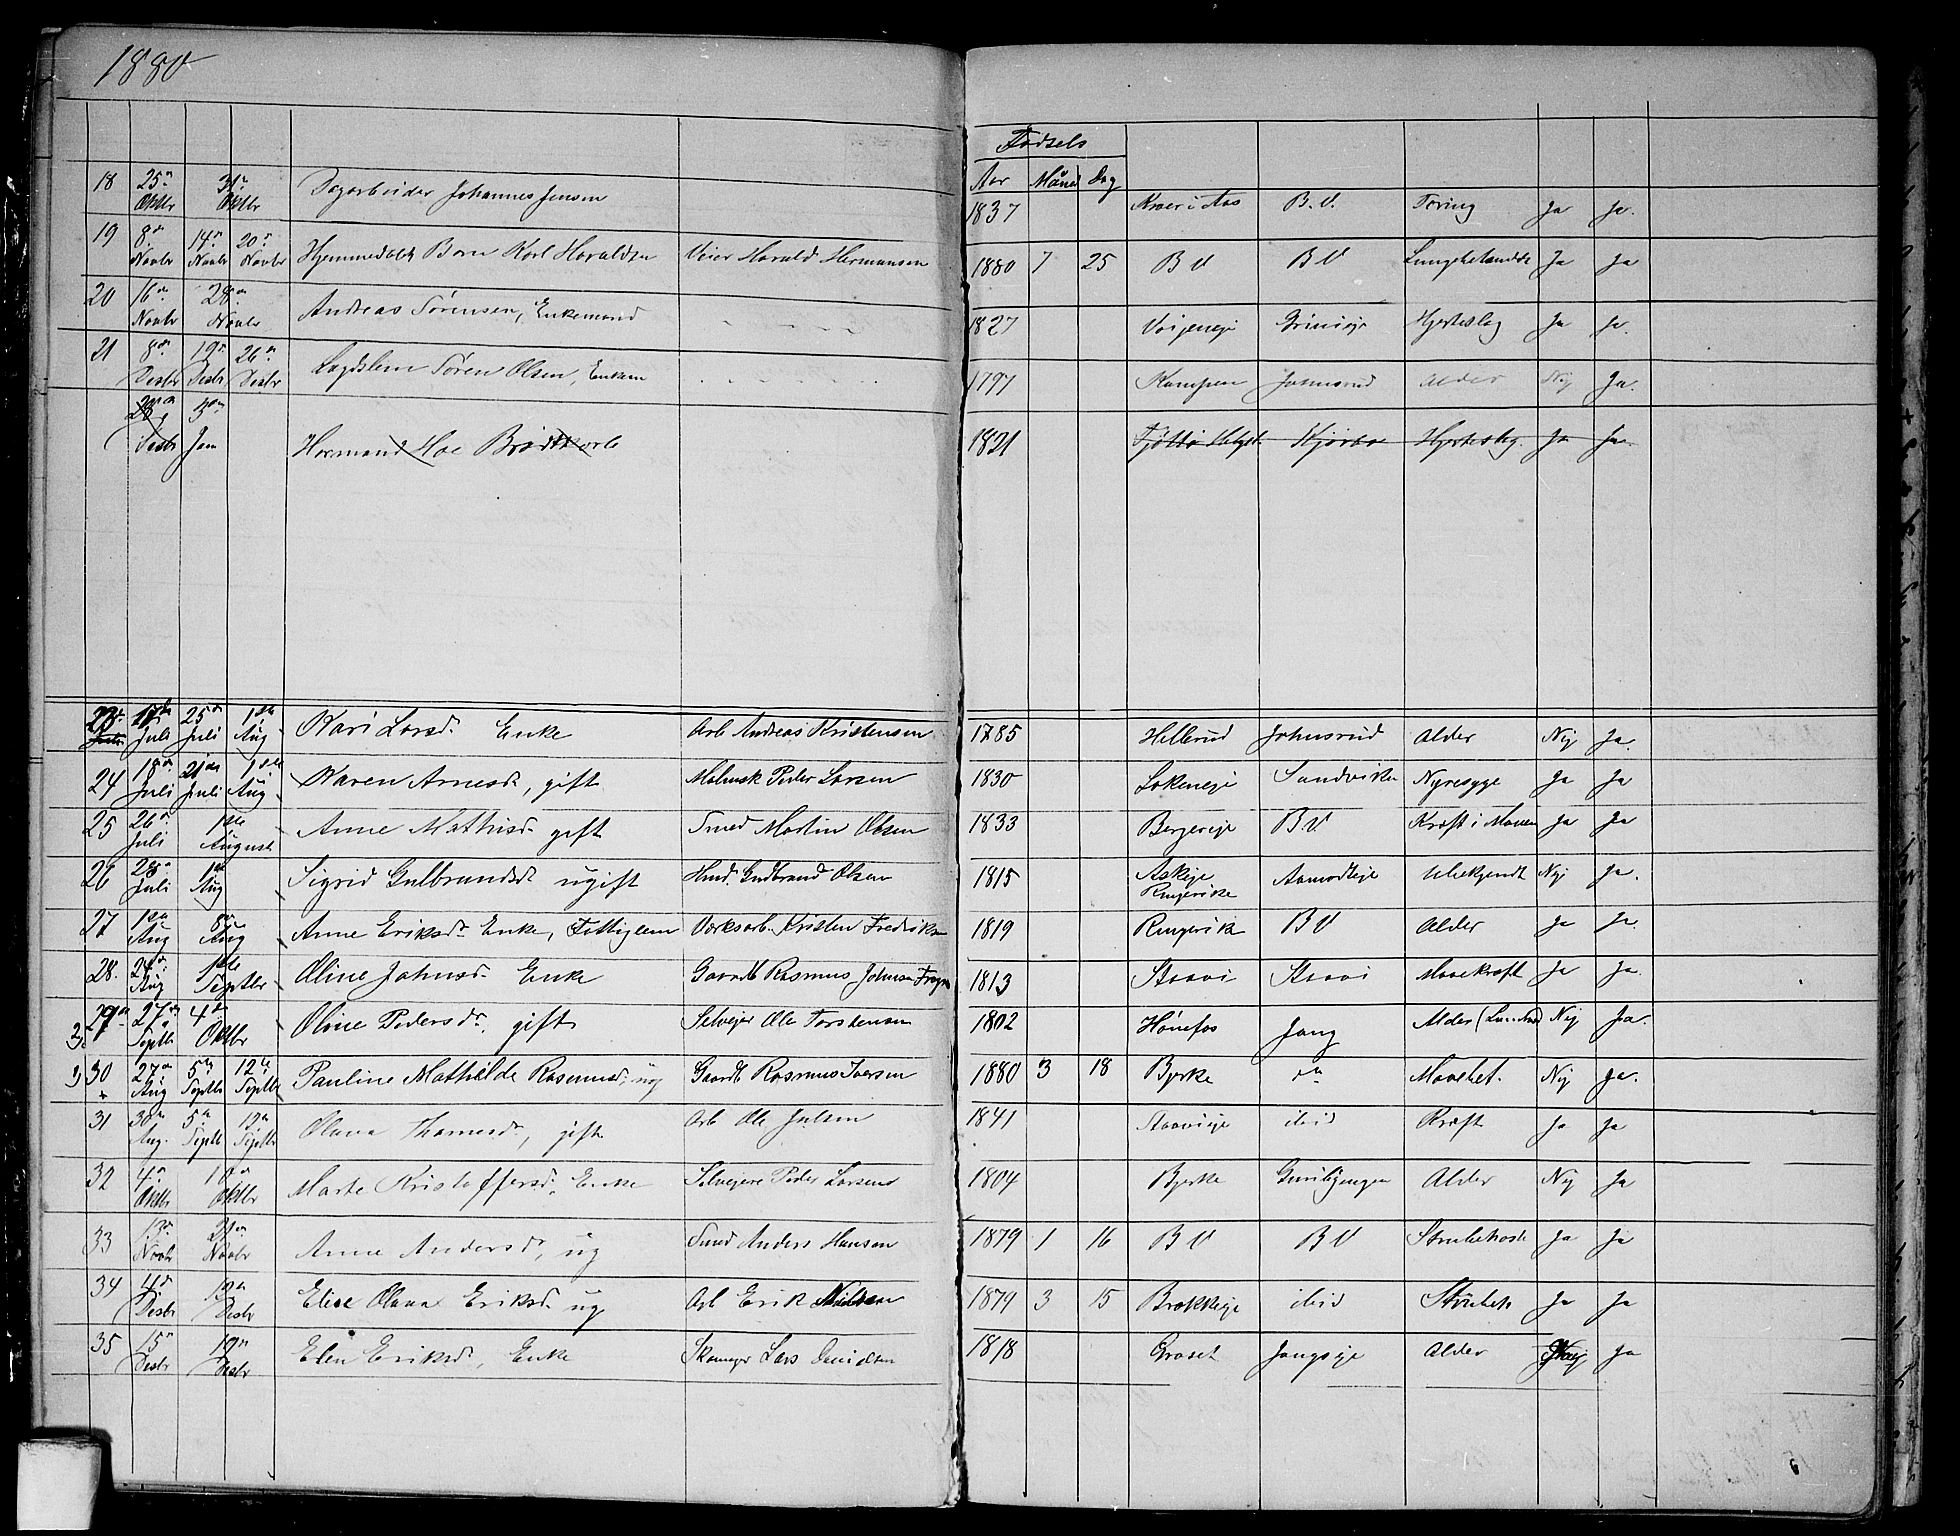 1880
Fødsels
Aar Måned Dag
18 25de Oktbr 31te Oktbr Dagarbeider Johannes Jensen 1837 Kroer i Aas B.V. Tæring Ja Ja.
19 8de Novbr 14de Novbr 20de Novbr Hjemmedøbt Barn Karl Haraldsen Harald Hermansen 1880 7 25 B V B V Lungebetændelse Ja Ja
20 16de Novbr 28de Novbr Andreas Sørensen, Enkemand 1827 Grinieje Hjerteslag Ja Ja.
21 8de Desbr 19de Desbr 26de Desbr Lægdslem Søren Olsen, Enkem 1797 Kampen Johnsrud Alder Nej Ja.
28de Desbr 5te Jan Hermand Hoe Brodtkorb 1821 Tjøttø Helgel. Skjørbo Hjerteslag Ja Ja.
23 17de Juli 25de Juli 1ste Aug Kari Larsd. Enke Arb Andreas Kristensen 1785 Hellerud Johnsrud Alder Nej Ja.
24 18de Juli 21de Juli 1ste Aug Karen Arnesd, gift Peder Larsen 1830 Løkeneje Sandviken Nyresyge Ja Ja
25 26de Juli 1ste August Anne Mathisd. gift Smed Martin Olsen 1833 Bergereje B V Kræft i Maven Ja Ja
26 28de Juli 1ste Aug Sigrid Gulbrandsd. ugift Husd. Gudbrand Olsen 1815 Askeje Ringerike Aamodteje Ubekjendt Nej Ja.
27 1ste Aug 8de Aug Anne Eriksd. Enke, Fattiglem Værksarb. Kristen Fredriksen 1819 Ringerik B V Alder Ja Ja.
28. 24de Aug 1ste Septbr Oline Johnsd. Enke Gaardb Rasmus Johnsen Frogn 1813 Staavi Staavi Mavekræft Ja Ja.
29 27de Septbr 4de Oktbr Oline Pedersd., gift Selvejer Ole Torstensen 1802 Hønefos Jong Alder Nej Ja.
30 27de Aug 5te Septbr 12te Septbr Pauline Mathilde Rasmusd, ug Gaardb Rasmus Iversen 1880 3 18 Bjerke do Nej Ja.
31 30te Aug. 5te Septbr 12te Septbr Olava Thomesd., gift Arb Ole Julsen 1841 Staavieje ibid Kræft Ja Ja
32 4de Oktbr 10de Oktbr Marte Kristoffersd, Enke Selvejere Peder Larsens 1804 Bjerke Alder Nej Ja
33 13de Novbr 21de Novbr Anne Andersd, ug Smed Anders Hansen 1879 1 16 B V B V Strubehoste Ja Ja
34 4de Desbr 12te Desbr Elise Olava Eriksd. ug Arb Erik Nielsen 1879 3 15 Brækkeje ibid Strubeh Ja Ja
35 15de Desbr 19de Desbr Elen Eriksd, Enke Skomager Lars Davidsen 1818 Groset Jongseje Alder Nej Ja